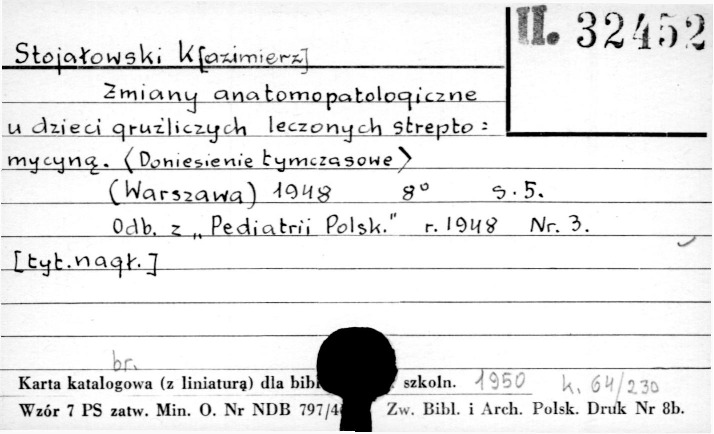 II. 32452
Stojałowski K[azimierz]
Zmiany anatomopatologiczne
u dzieci gruźliczych leczonych strepto=
mycyną. (Doniesienie tymczasowe)
(Warszawa) 1948 8° s. 5.
Odb. z „Pediatrii Polsk." r. 1948 Nr. 3.
[tyt. nagł.]
br.
Karta katalogowa (z liniaturą) dla szkoln. 1950 k. 64/230
Wzór 7 PS zatw. Min. O. Nr NDB Zw. Bibl. i Arch. Polsk. Druk Nr 8b.